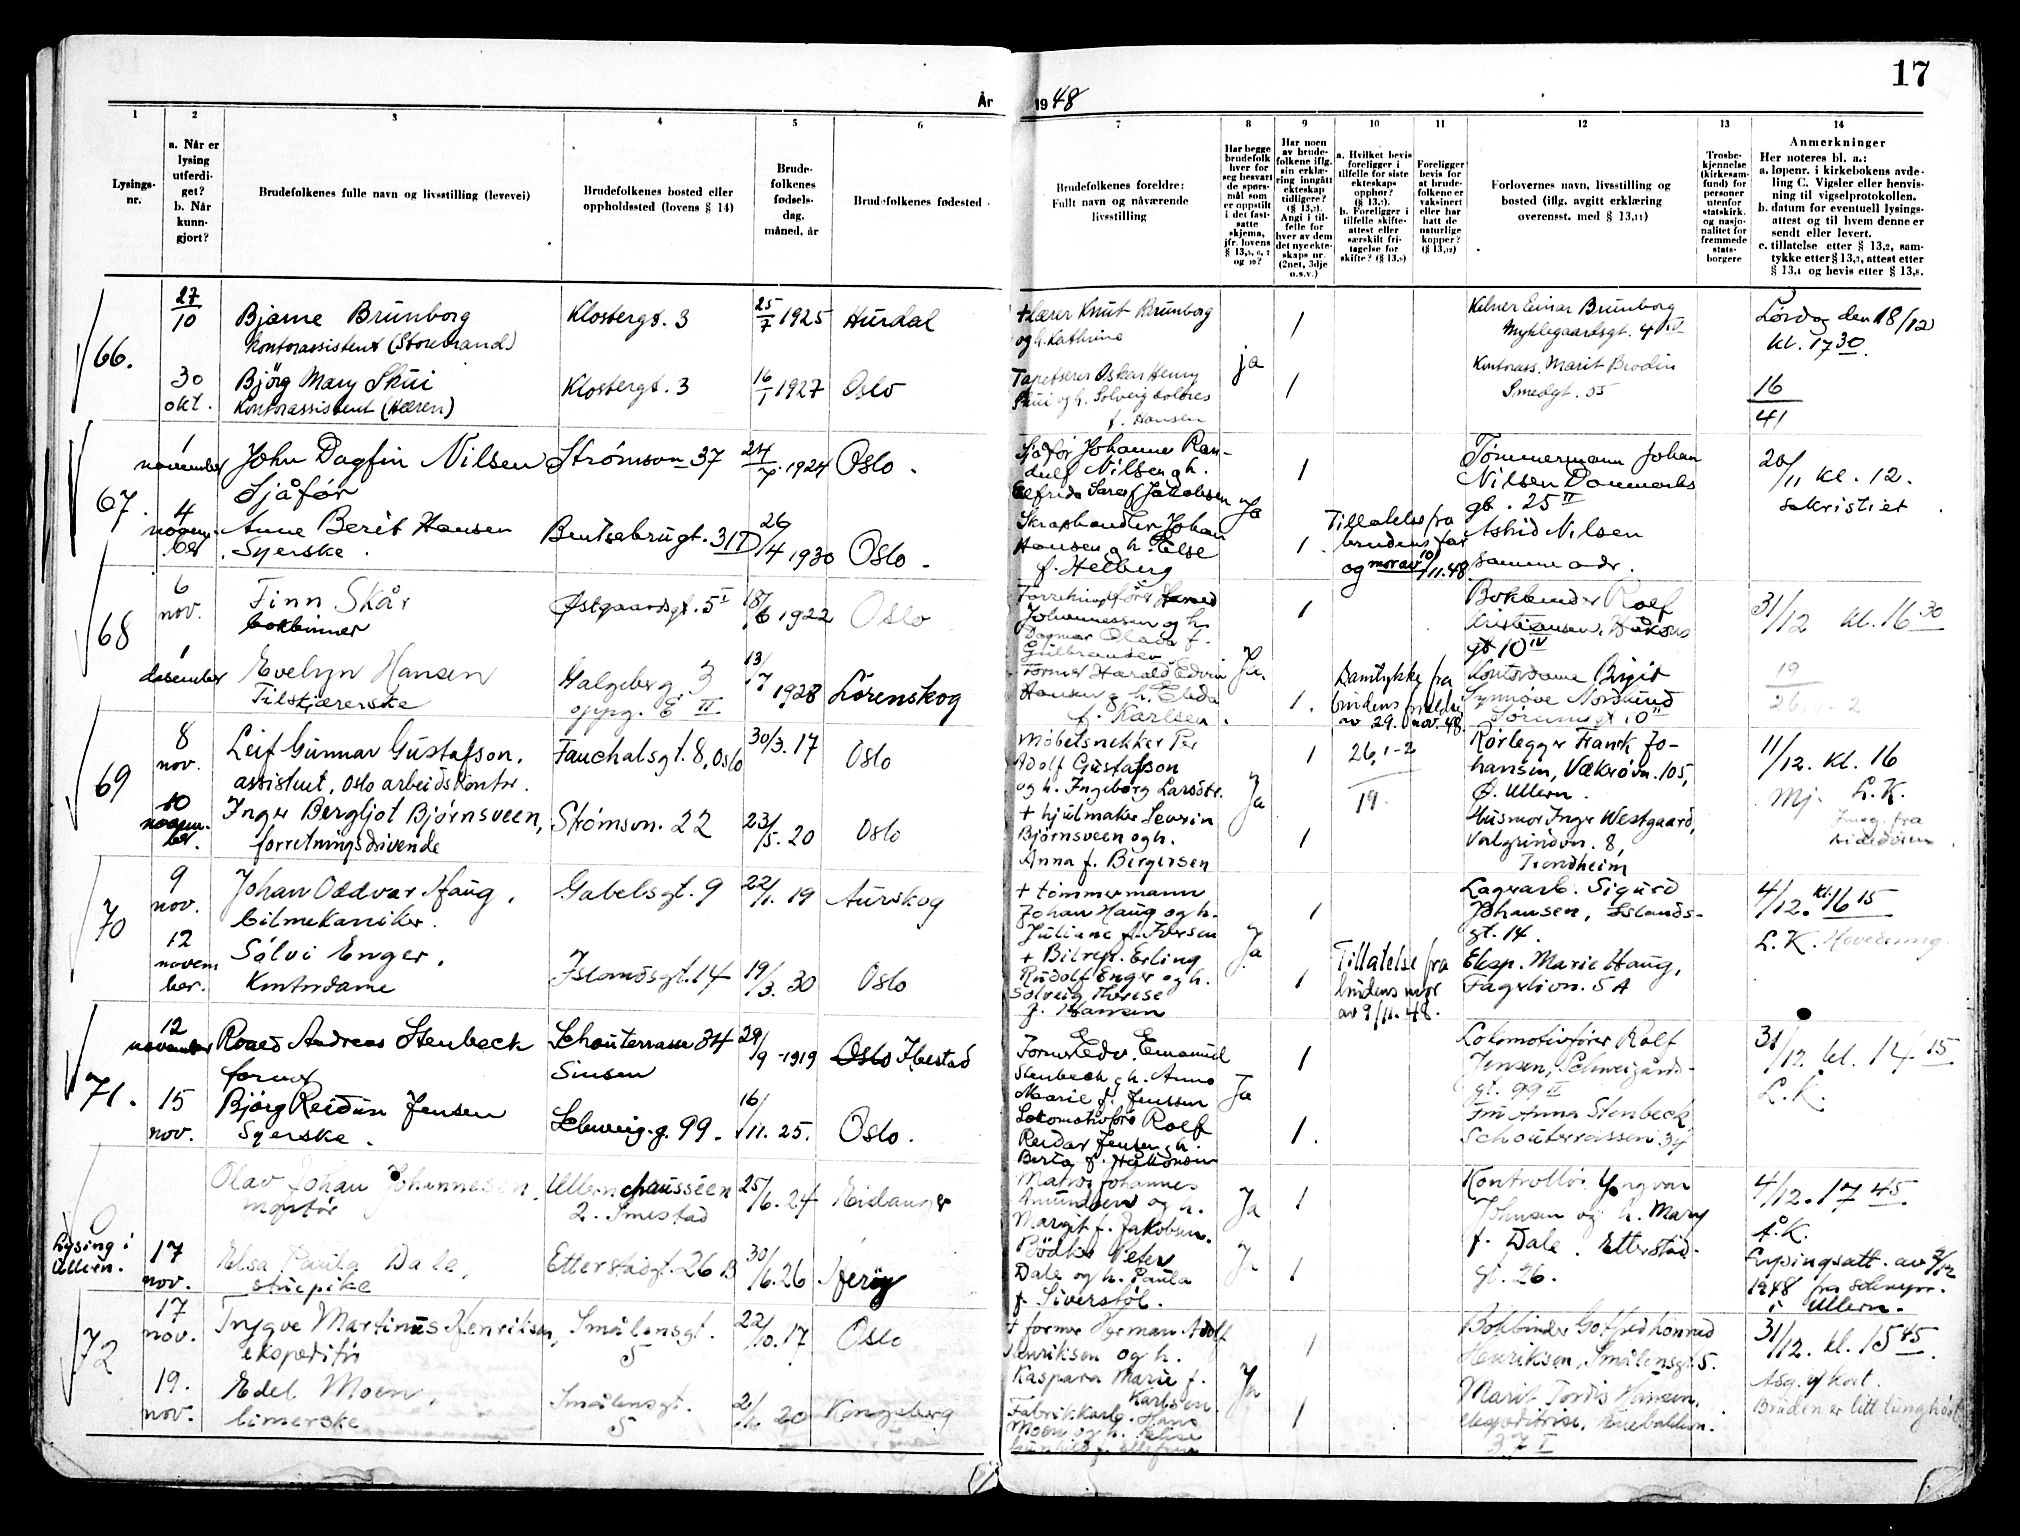 17
År 1948
1
2
3
4
5
6
7
8
9
10
11
12
13
14
Lysings-
nr.
a. Når er
lysing
utferdi-
get?
b. Når
kunn-
gjort?
Brudefolkenes fulle navn og livsstilling (levevei)
Brudefolkenes bosted eller
oppholdssted (lovens § 14)
Brude-
folkenes
fødsels-
dag,
måned, år
Brudefolkenes fødested
Brudefolkenes foreldre:
Fullt navn og nåværende
livsstilling
Har begge
brudefolk
hver for
seg besvart
de spørs-
mål som
er oppstilt
i det fast-
satte
skjema,
jfr. lovens
Har noen
av brude-
folkene iflg.
sin erklæ-
ring inngått
ekteskap
tidligere?
Angi i til-
felle for
hver av dem
det nye ekte-
skaps nr.
(2net, 3dje
o.s.v.)
a. Hvilket bevis
foreligger i
tilfelle for siste
ekteskaps
opphør?
b. Foreligger i
tilfelle skifte-
attest eller
særskilt fri-
tagelse for
Foreligger
bevis for
at brude-
folkene er
vaksinert
eller har
hatt de
naturlige
kopper?
Forlovernes navn, livsstilling og
bosted (iflg. avgitt erklæring
overensst. med § 13,11)
Trosbe-
kjennelse
(kirkesam-
fund) for
personer
utenfor
statskirk.
og nasjo-
nalitet for
fremmede
stats-
borgere
Anmerkninger
Her noteres bl. a.:
a. løpenr. i kirkebokens avde-
ling C. Vigsler eller henvis-
ning til vigselprotokollen.
b. datum for eventuell lysings-
attest og til hvem denne er
sendt eller levert.
c. tillatelse etter § 13,2, sam-
tykke etter § 13,3, attest etter
§ 13,4 og bevis etter § 13,8.
66.
27/10
Bjarne Brunborg
Klosbergt. 3
25/7 1925
Hurdal
+ Lærer Knut Brunborg
og h. Kathrine
1
Kelner Einar Brunborg
Lørdag den 18/12
kontorassistent (Storebrand)
kl. 17 30
ja
30
okt.
Bjørg Mary Skui
kontorassistent (Hæren)
Klosbergt. 3
16/1 1927
Oslo
Tapetserer Oskar Henry
Skui og h. Solveig Dolores
f. Hansen
1
Kontorass. Marit Brodin
Smedgt. 55
16
41
67.
1
november
John Dagfin Nilsen
Sjåfør
Strømsvn 37
24/7. 1924
Oslo.
Sjåfør Johannes Ran-
dulf Nilsen og h.
1
Tømmermann Johan
Nilsen Danmarks
gt. 25 II
20/11 kl. 12.
sakristiet.
Ja
4
Anne Berit Hansen
Syerske.
Bentsebrugt. 31 I
26/4 1930
Oslo.
Skraphandler Johan
Hansen og h. Else
f. Helberg
1.
Tillatelse fra
brudens far
og mor av 10/11.48.
Astrid Nilsen
samme adr.
68
6
nov.
Finn Skår
bokbinner
Østgaardsgt. 5 I
18/6 1922
Oslo
Johannessen og h.
1
Bokbinder Rolf
Kristiansen, Håkons
gt 10 IV
31/12 kl. 16 30
Ja.
1
desember
Evelyn Hansen
Tilskjærerske
Galgeberg 3
oppg. E II
13/7 1928
Lørenskog
Former Harald Edvin
Hansen og h.
f. Karlsen.
1.
Samtykke fra
brudens foreldre
av 29. nov. 48.
Kontordame Birgit
Synnøve Nordlund
19
26, 1-2
69
8
nov.
Leif Gunnar Gustafson,
assistent, Oslo arbeidskontor.
Fauchalsgt. 8, Oslo
30/3. 17
Oslo
Møbelsnekker Per
Adolf Gustafson
og h. Ingeborg Larsdtr.
1
26, 1-2
19.
Rørlegger Frank Jo-
hansen, Vækerøvn. 105,
Ø. Ullern.
11/12. kl. 16
Mj. L. K.
Inng. fra
sidedøren.
Ja
10
Inger Bergljot Bjørnsveen,
forretningsdrivende
Strømsvn. 22
23/5. 20
Oslo
+ hjulmaker Severin
Bjørnsveen og h.
Anna f. Bergersen
1
Husmor Inger Westgaard,
Valgrindvn. 8,
Trondheim
70
9
nov.
Johan Oddvar Haug,
bilmekaniker.
Gabelsgt. 9
22/1. 19
Aurskog
+ tømmermann
Johan Haug og h.
Juliane f. Iversen
1
Lagerarb. Sigurd
Johansen, Islands-
gt. 14.
4/12. kl. 16 15
L. K. Hovedinng.
Ja
12
novem
ber.
Sølvi Enger,
Kontordame
Islandsgt. 14
19/3. 30
Oslo
+ Bilrep. Erling
Rudolf Enger og h.
Solveig Therese
f. Hansen
1
Tillatelse fra
brudens mor
av 9/11. 48.
Eksp. Marie Haug,
Fagerlivn. 5 A
71.
12
november
Roald Andreas Stenbeck
former
Schouterrassen 34
Sinsen
29/9 - 1919
Oslo Ibestad
Former Edv. Emanuel
Stenbeck og h. Anna
Marie f. Jenssen
1
Lokomotivfører Rolf
Jensen, Schweigårds-
gt. 99 II
31/12 kl. 14 15
L. K.
Ja
15
nov.
Bjørg Reidun Jensen
Syerske.
Schweig. g. 99.
16/11. 25.
Oslo.
Lokomotivføre Rolf
Reidar Jensen og h.
Berta f. Håkonsen
1.
Fru Anna Stenbeck
Schouterrassen 34
Olav Johan Johannesen,
montør
Ullernchausséen
2. Smestad
25/6. 24
Eidanger
Matros Johannes
Amundsen og h.
Margit f. Jakobsen.
Ja
1
Kontrollør Yngvar
Johnsen og h. Mary
f. Dale. Etterstad-
gt. 26.
4/12. 17 45.
Å. K.
Lysing i
Ullern.
17
nov.
Elsa Paula Dale,
stuepike
Etterstadgt. 26 B
30/6. 26
Nerøy
Bødker Peter
Dale og h. Paula
f. Siverstøl.
Ja
1
Lysingsatt. av 2/12
1948 fra sokneprr.
i Ullern.
72
17
nov.
Trygve Martinus Henriksen,
ekspeditør
Smålensgt.
5
22/10. 17
Oslo
+ former Herman Adolf
Henriksen og h.
Kaspara Marie f.
Karlsen
1
Bokbinder Gotfred Konrad
Henriksen, Smålensgt. 5.
31/12. kl. 15 45.
Ja
19.
nov.
Edel Moen,
limerske
Smålensgt.
5
20
Kongsberg
Fabrikkarb. Hans
Moen og h.
1
Marit Tordis Hansen,
Bruden er litt tunghørt